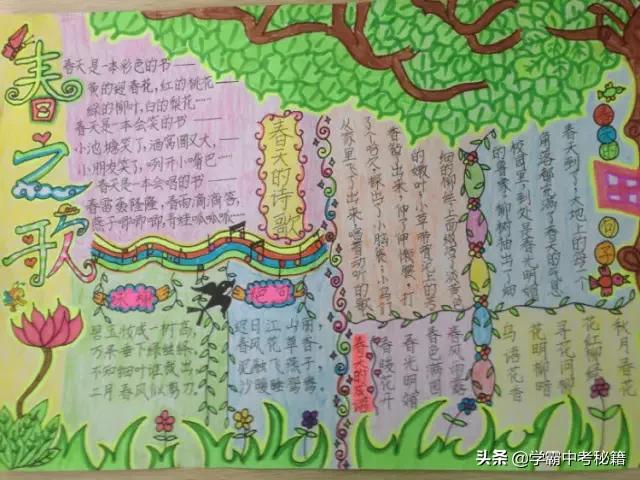 春之歌
春天是一本彩色的书——
黄的迎春花,红的桃花——
绿的柳叶,白的梨花……
春天是一本会笑的书——
小池塘笑了,酒窝圆又大,——
小朋友笑了,咧开小嘴巴……
春天是一本会唱的书——
春雷轰隆隆,春雨滴滴答,
燕子唧唧唧,青蛙呱呱呱…
春天的诗歌
春天的句子
春天到了,大地上的每一个
角落都充满了春天的气息
校园里,到处是春光明媚
的景象,柳树抽出了细
细的柳丝,上面缀满了淡黄色
的嫩叶;小草带着泥土的芳
香钻了出来,伸了伸懒腰,打
了个哈欠,探出了小脑袋;小鸟们
从家里飞了出来,唱着动听的歌
咏柳
碧玉妆成一树高,
万条垂下绿丝绦。
不知细叶谁裁出,
二月春风似剪刀。
绝句
迟日江山丽
春风花草香
泥融飞燕子
沙暖睡鸳鸯。
春天的成语
春暖花开
春光明媚
春色满园
春风
鸟语花香
花明柳暗
寻花问柳
花红柳绿
秋月春花
头条 @学霸中考秘籍